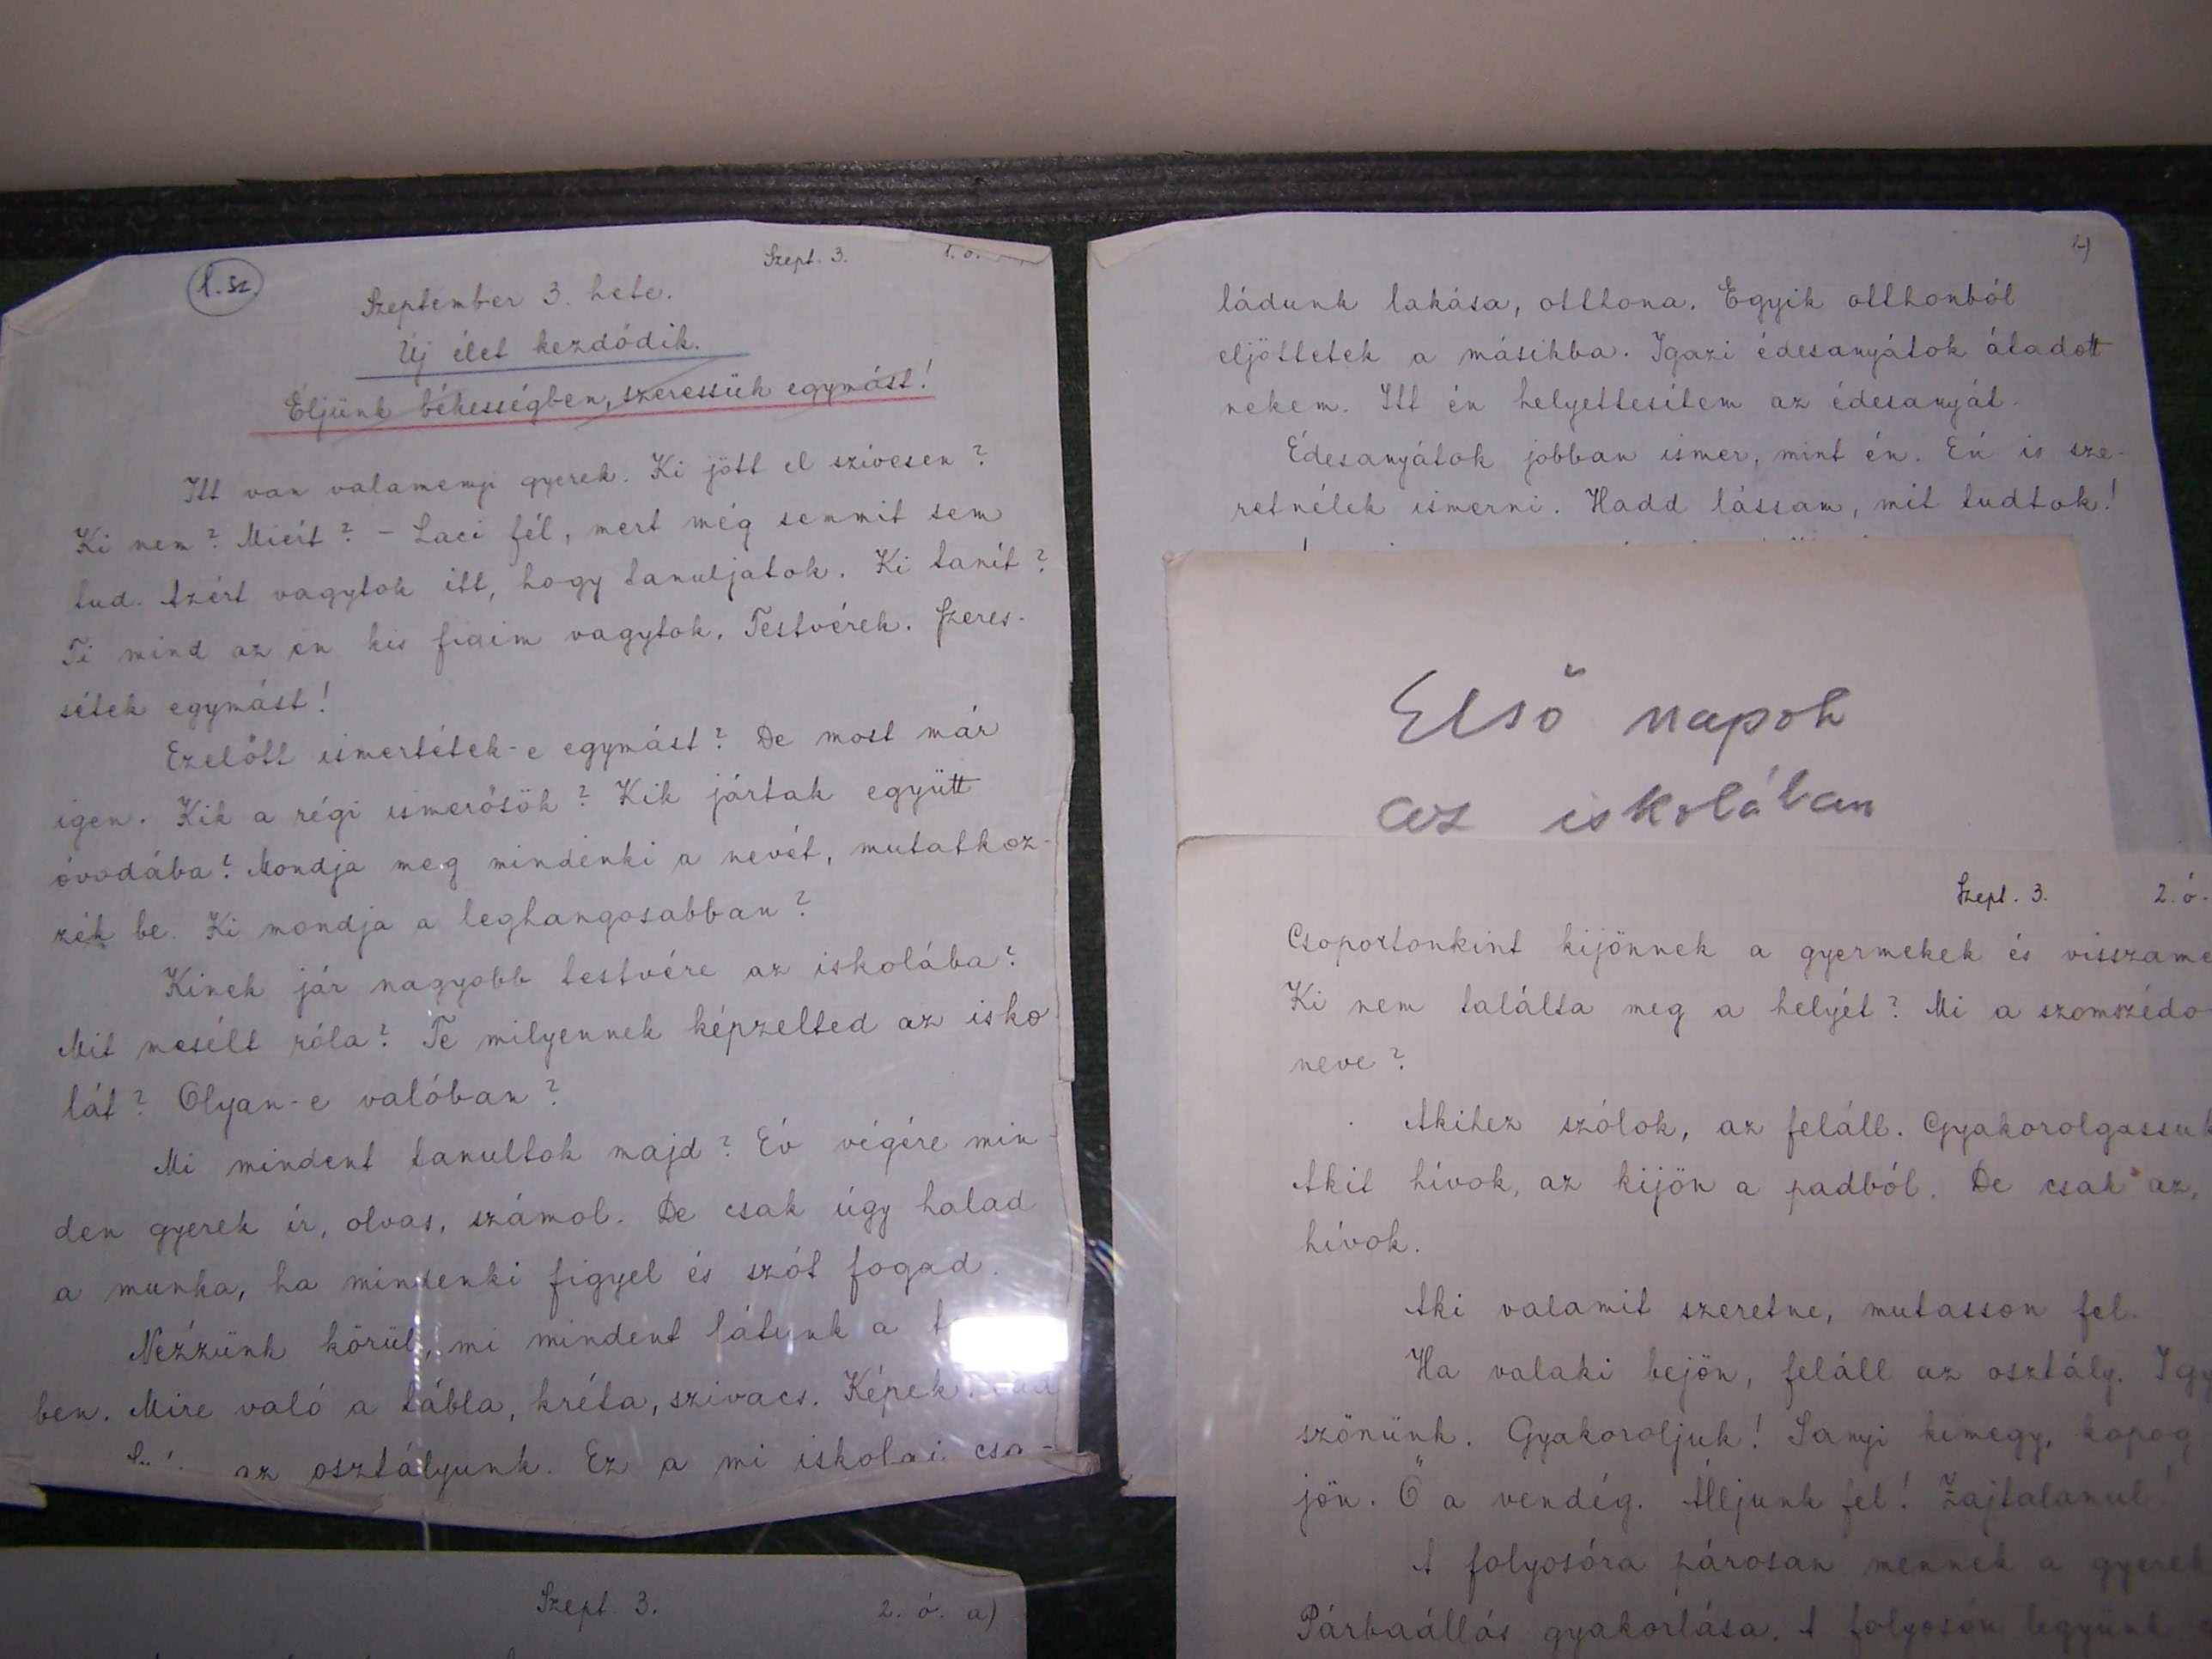 1. sz.
Szept. 3.
1. ó.
September 3. hete.
Új élet kezdődik.
Éljünk békességben, szeressük egymást!
Itt van valamenyi gyerek. Ki jött el szívesen?
Ki nem? Miért? - Laci fél, mert még semmit sem
tud. Azért vagytok itt, hogy tanuljatok. Ki tanít?
Ti mind az én kis fiaim vagytok. Testvérek. Szeres-
sétek egymást!
Ezelőtt ismertétek-e egymást? De most már
igen. Kik a régi ismerősök? Kik jártak együtt
óvodába? Mondja meg mindenki a nevét, mutatkoz-
zék be. Ki mondja a leghangosabban?
Kinek jár nagyobb testvére az iskolába?
Mit mesélt róla? Te milyennek képzelted az isko
lát? Olyan-e valóban?
Mi mindent tanultok majd? Év végére min-
den gyerek ír, olvas, számol. De csak úgy halad
a munka, ha mindenki figyel és szót fogad.
Nézzünk körül, mi mindent látunk a t
ben. Mire való a tábla, kréta, szivacs. Képek.
az osztályunk. Ez a mi iskolai csa-
Szept. 3.
2. ó. a)
2)
ládunk lakása, otthona. Egyik otthonból
eljöttetek a másikba. Igazi édesanyátok átadott
nekem. Itt én helyettesítem az édesanyát.
Édesanyátok jobban ismer, mint én. Én is sze-
retnélek ismerni. Hadd lássam, mit tudtok!
Első napok
az iskolában
Szept. 3.
2. ó.
Csoportonkint kijönnek a gyermekek és visszame
Ki nem találta meg a helyét? Mi a szomszédo
neve?
Akihez szólok, az feláll. Gyakorolgassuk
Akit hívok, az kijön a padból. De csak az,
hívok.
Aki valamit szeretne, mutasson fel.
Ha valaki bejön, feláll az osztály. Igy
szönünk. Gyakoroljuk! Sanyi kimegy, kopog
jön. Ő a vendég. Álljunk fel! Zajtalanul!
A folyosóra párosan mennek a gyerek
Párbaállás gyakorlása. A folyosón legyünk